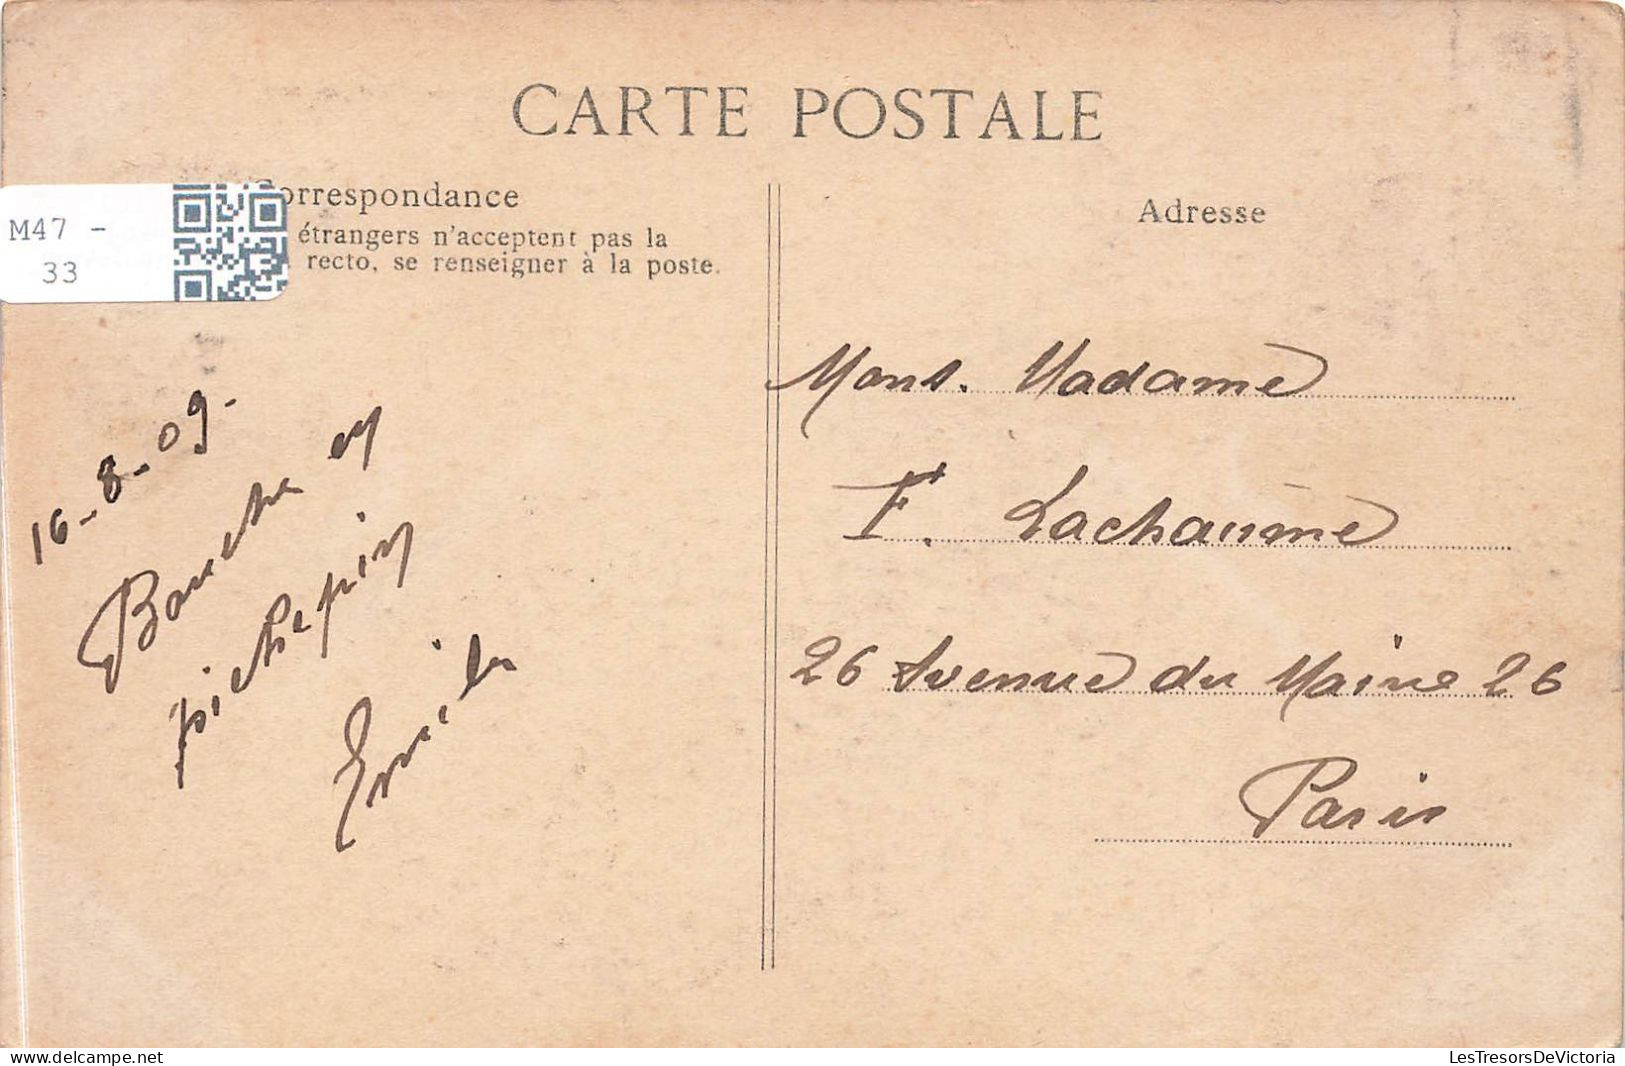 CARTE POSTALE
Correspondance
étrangers n'acceptent pas la
recto, se renseigner à la poste.
M47 -
33
Adresse
16-8-09-
Emile
Mons. Madame
F. Lachaume
26 Avenue du Maine 26
Paris
LesTresorsDeVictoria
delcampe.net